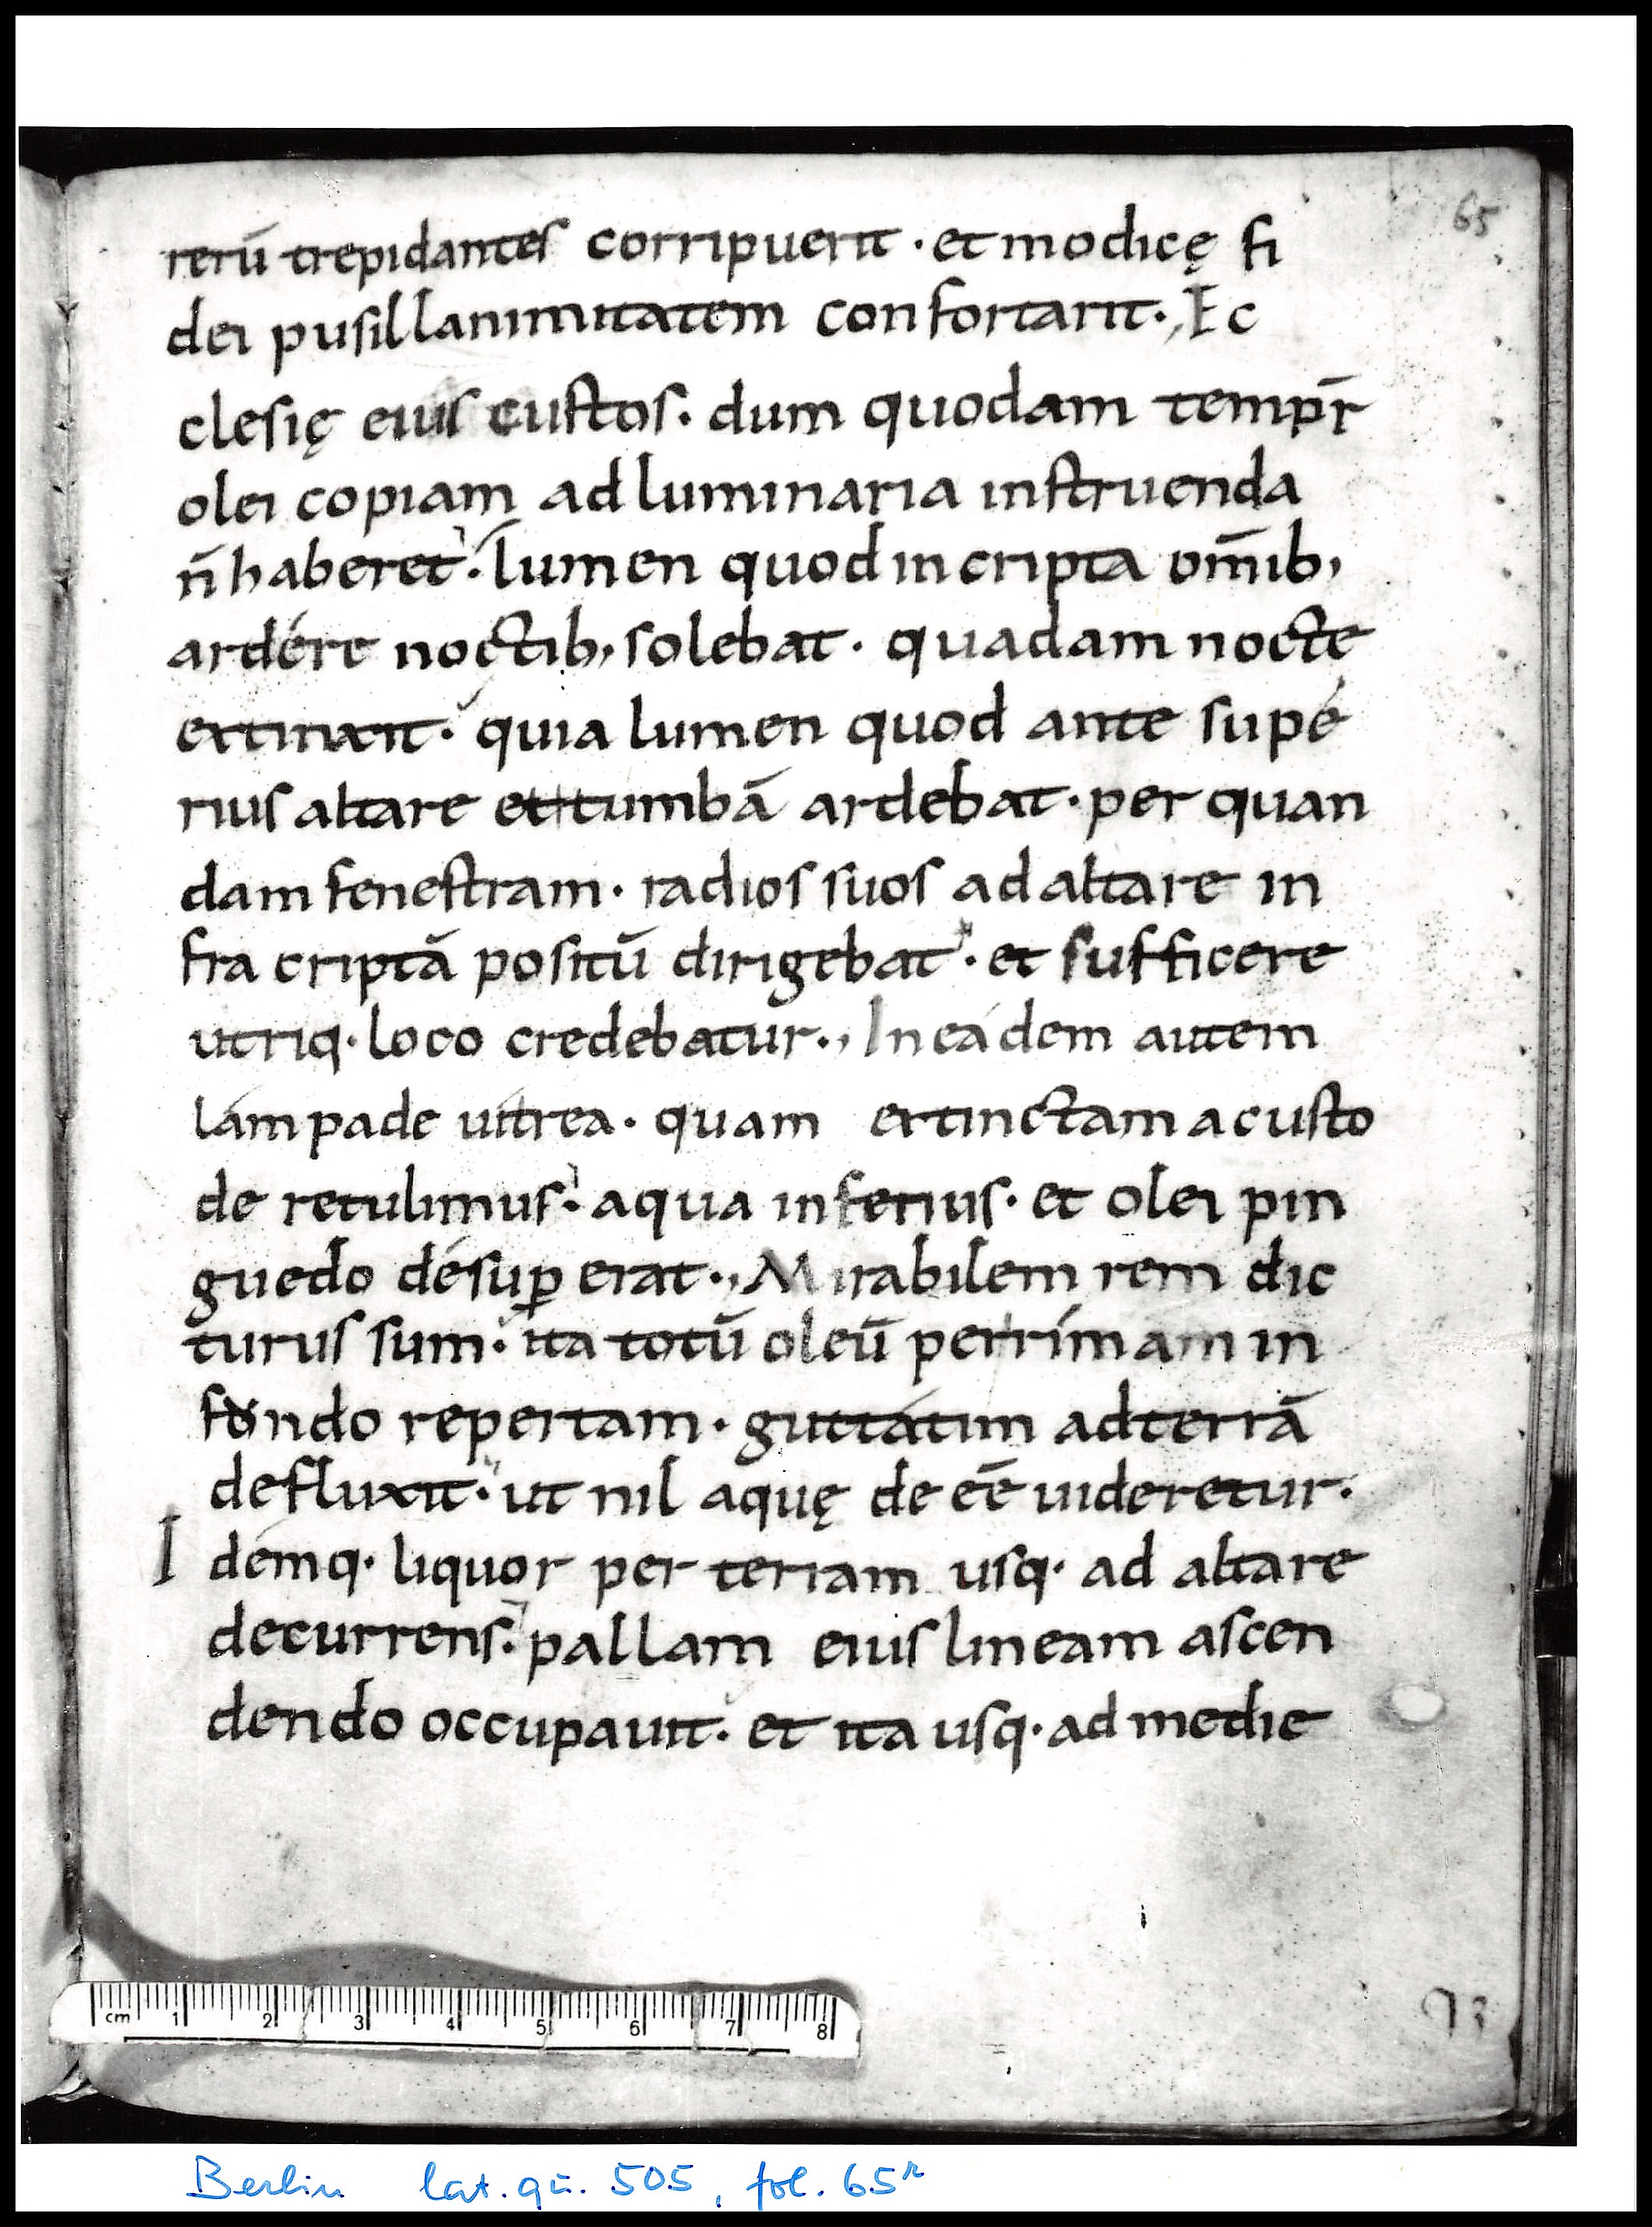 65
rerū trepidantes corripuerit · et modicę fi
dei pusillanimitatem confortarit·, Ec
clesię eius custos· dum quodam tempr̄
olei copiam ad luminaria instruenda
n̄ haberet· lumen quod in cripta om̄ib,
ardére noctib, solebat · quadam nocte
extinxit· quia lumen quod ante supé
rius altare et tumbā ardebat · per quan
dam fenestram · radios suos ad altare in
fra criptā positū dirigebat · et sufficere
utriq· loco credebatur·, In eádem autem
lámpade uitrea · quam extinctam a custo
de retulimus· aqua inferius · et olei pin
guedo désuꝑ erat·, Mirabilem rem dic
turus sum· ita totū oleū per rímam in
fundo repertam · guttátim ad terrā
defluxit· ut nil aquę de eē uideretur·
Idémq· liquor per terram usq· ad altare
decurrens· pallam eius lineam ascen
dendo occupauit· et ita usq· ad medie
93
cm 1 2 3 4 5 6 7 8
Berlin lat. qu. 505, fol. 65r